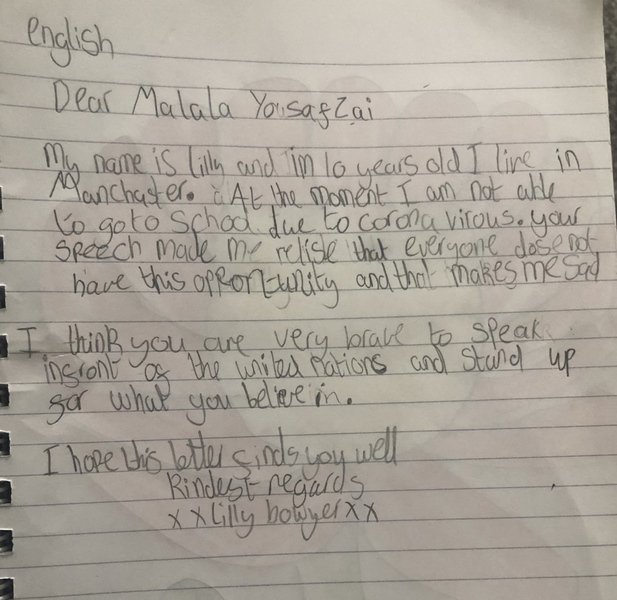 english
Dear Malala Yousafzai
My name is Lilly and i'm 10 years old I live in
Manchaster. At the moment I am not able
to go to School due to corona virous. your
speech made me relise that everyone dose not
have this opportunity and that makes me sad
I think you are very brave to speak
infront of the united nations and stand up
for what you believe in.
I hope this letter finds you well
Kindest regards
x x Lilly bowyer x x